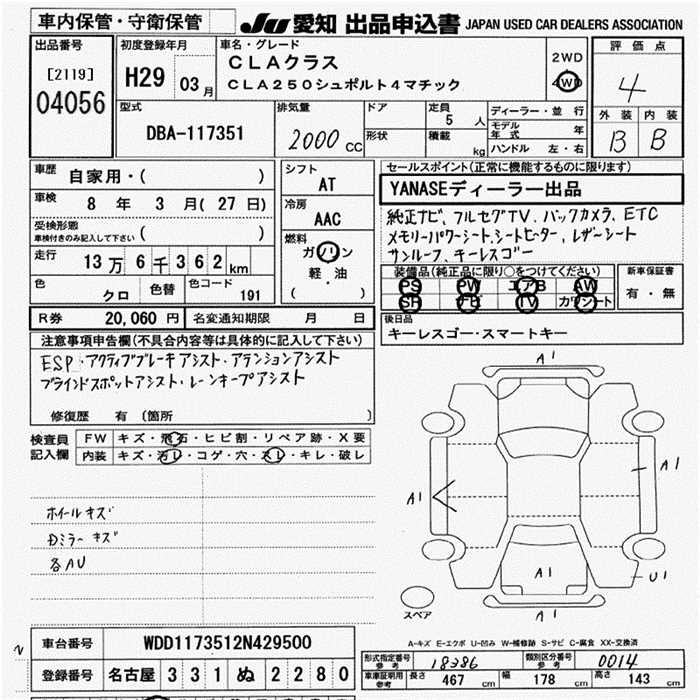 車内保管・守衛保管
JU 愛知 出品申込書 JAPAN USED CAR DEALERS ASSOCIATION
出品番号
[2119]
04056
初度登録年月
H29 03月
車名・グレード
CLAクラス
CLA250シュポルト4マチック
2WD
4WD
評価点
4
外装 内装
B B
型式
DBA-117351
排気量
2000 CC
ドア
形状
定員
5 人
積載
kg
ディーラー・並行
モデル年式 年
ハンドル 左・右
車歴
自家用・( )
車検
8 年 3 月( 27 日)
受検形態
車検付きのみ記入して下さい ( )
走行
13万 6千 3 6 2 km
色
クロ
色替
色コード
191
シフト
AT
冷房
AAC
燃料
ガソリン
軽・油
( )
セールスポイント(正常に機能するものに限ります)
YANASEディーラー出品
純正ナビ、フルセグTV、バックカメラ、ETC
メモリーパワーシート、シートヒーター、レザーシート
サンルーフ、キーレスゴー
装備品(純正品に限り○をつけてください)
PS PW エアB AW
SR ナビ TV カワシート
新車保証書
有・無
R券 20,060 円 名変通知期限 月 日
後日品
キーレスゴー・スマートキー
注意事項申告欄(不具合内容等は具体的に記入して下さい)
ESP・アクティブブレーキアシスト・アテンションアシスト
ブラインドスポットアシスト・レーンキープアシスト
修復歴 有 (箇所 )
検査員
記入欄
FW キズ・飛石・ヒビ割・リペア跡・X要
内装 キズ・汚レ・コゲ・穴・スレ・キレ・破レ
ホイールキズ
Dミラーキズ
各AU
A1
A1
A1
A1
U1
A1
スペア
A-キズ E-エクボ U-凹み W-補修跡 S-サビ C-腐食 XX-交換済
車台番号 WDD1173512N429500
登録番号 名古屋 3 3 1 ぬ 2 2 8 0
形式指定番号
参考
18386
類別区分番号
参考
0014
車庫証明用
参考
長さ 467 cm 幅 178 cm 高さ 143 cm